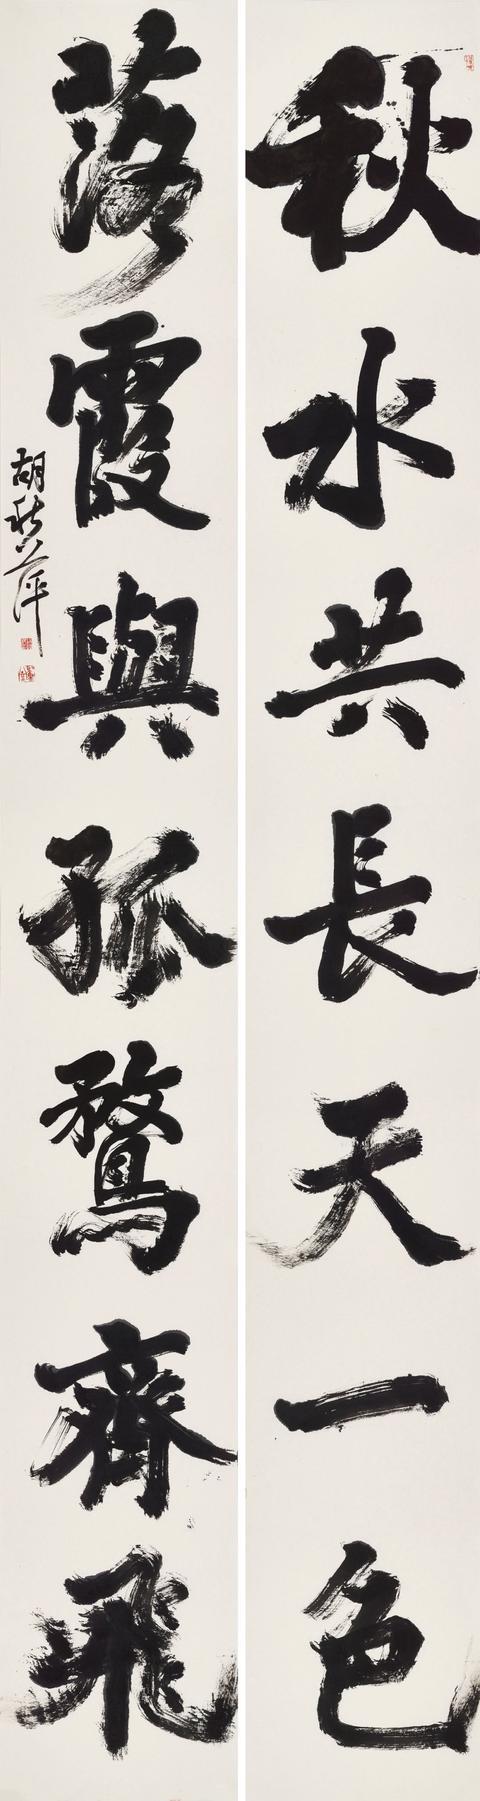 秋水共長天一色
落霞與孤鶩齊飛
胡秋萍